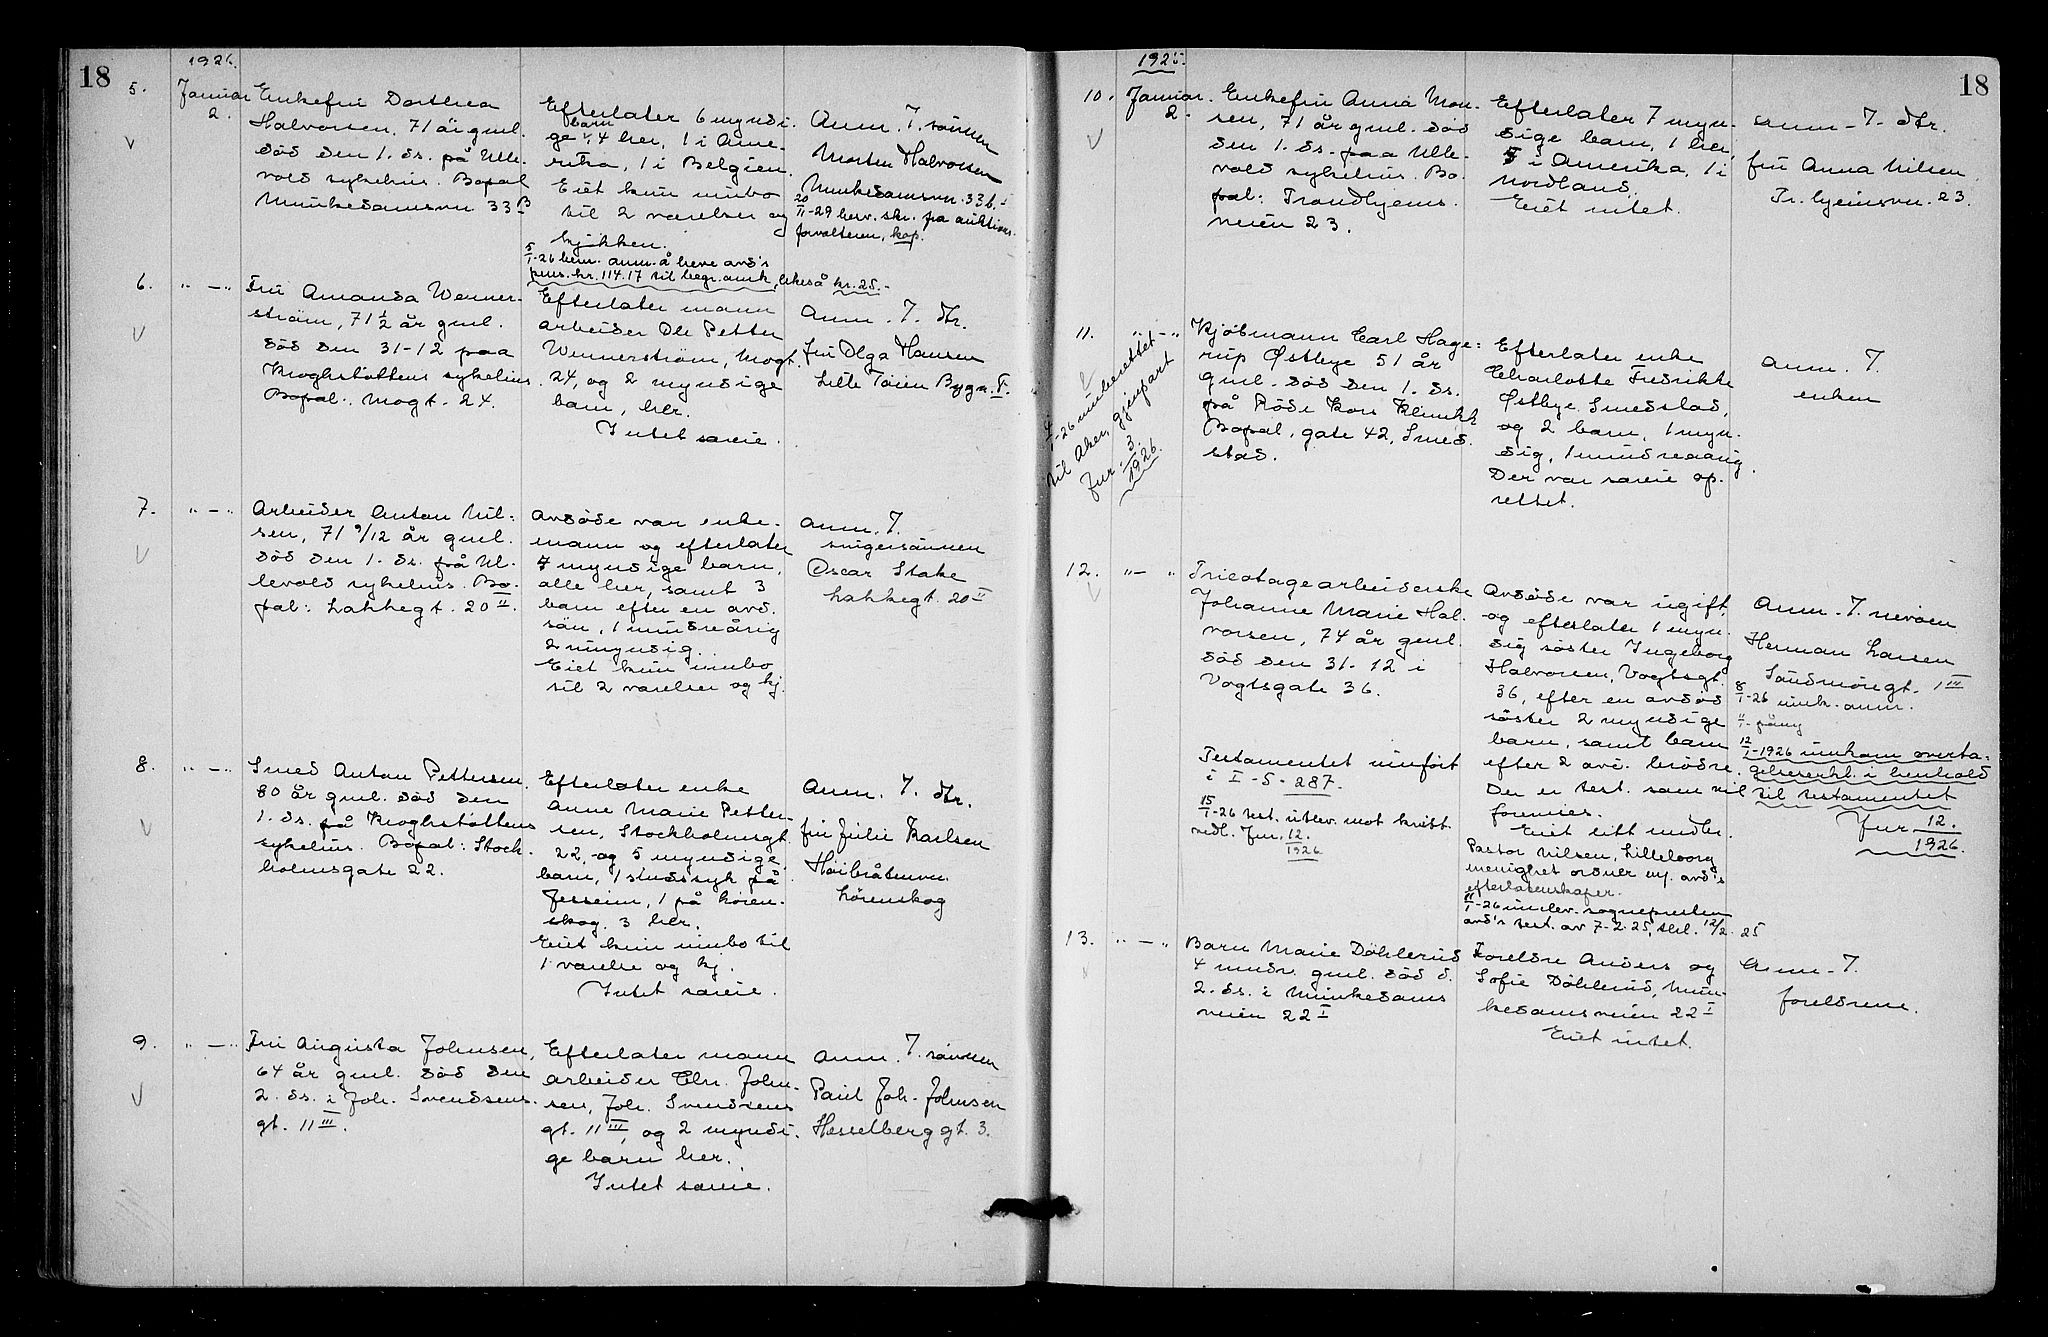 18
1926.
5.
Januar
2.
Enkefru Dorthea
Halvorsen, 71 år gml.
död den 1. ds. på Ulle-
vold sykehus. Bopal
Munkedamsvn 33 B
Efterlater 6 myndi-
ge barn, 4 her, 1 i Ame-
rika, 1 i Belgien.
Eiet kun innbo
til 2 værelser og
kjökken.
5/I-26 bem. anm. å heve avd's
pens. kr. 114.17 til begr. omk, likeså kr. 25.-
Anm. T. sönnen
Morten Halvorsen
Munkedamsvn. 33 b. I
20/II-29 herv. skr. fra auktions-
forvalteren, kop.
6.
" — "
Fru Amanda Wenner-
ström, 71 1/2 år gml.
död den 31-12 paa
Kroghstöttens sykehus
Bopal: Mogt. 24.
Efterlater mann
arbeider Ole Petter
Wennerström, Mogt.
24, og 2 myndige
barn, her.
Intet særeie.
Anm. T. dtr.
fru Olga Hansen
Lille Töien Bygn. V.
7.
" — "
Arbeider Anton Nil-
sen, 71 9/12 år gml.
död den 1. ds. på Ul-
levold sykehus. Bo-
pal: Lakkegt. 20 II.
Avdöde var enke-
mann og efterlater
7 myndige barn,
alle her, samt 3
barn efter en avd.
sön, 1 mindreårig
2 umyndig.
Eiet kun innbo
til 2 værelser og kj.
Anm. T.
svigersönnen
Oscar Stake
Lakkegt. 20 II
8.
" — "
Smed Anton Pettersen
80 år gml. död den
1. ds. på Kroghstöttens
sykehus. Bopal: Stock-
holmsgate 22.
Efterlater enke
Anne Marie Petter-
sen, Stockholmsgt.
22, og 5 myndige
barn, 1 sindssyk på
Jesseim, 1 på Lören-
skog, 3 her.
Eiet kun innbo til
1 værelse og kj.
Intet særeie.
Anm. T. dtr.
fru Julie Karlsen
Höibråtenvn.
Lörenskog
9.
" — "
Fru Augusta Johnsen,
64 år gml. död den
2. ds. i Joh. Svendsens
gt. 11 III.
Efterlater mann
arbeider Chr. John-
sen, Joh. Svendsens
gt. 11 III, og 2 myndi-
ge barn her.
Intet særeie.
Anm. T. sönnen
Paul Joh. Johnsen
Hesselberg gt. 3.
18
1926.
10.
Januar.
2.
Enkefru Anna Mon-
sen, 71 år gml. död
den 1. ds. paa Ulle-
vold sykehus. Bo-
pal: Trondhjems-
veien 23.
Efterlater 7 myn-
dige barn, 1 her,
5 i Amerika, 1 i
Nordland.
Eiet intet.
Anm. T. dtr.
fru Anna Nilsen
Tr.hjemsvn. 23.
11.
" — "
4/I-26 innberettet
til Aker, gjenpart
Jnr. 3/1926.
Kjöbmann Carl Hage-
rup Østbye 51 år
gml. död den 1. ds.
på Röde Kors Klinikk
Bopal, gate 42, Smed-
stad.
Efterlater enke
Charlotte Fredrikke
Østbye Smedstad,
og 2 barn, 1 myn-
dig, 1 mindreaarig.
Der var særeie op-
rettet.
Anm. T.
enken
12.
" — "
Tricotagearbeiderske
Johanne Marie Hal-
vorsen, 74 år gml.
död den 31-12 i
Vogtsgate 36.
Testamentet innfört
i I-5-287.
15/I-26 test. utlev. mot kvitt.
vedl. Jnr. 12/1926
Avdöde var ugift,
og efterlater 1 myn-
dig söster Ingeborg
Halvorsen, Vogtsgt.
36, efter en avdöd
söster 2 myndige
barn, samt barn
efter 2 avd. brödre.
Der er test. som vil
forevises.
Eiet litt midler.
Pastor Nilsen, Lilleborg
menighet ordner m. avd's
efterladenskaper.
11/I-26 innlev. sognepresten
avd's test. av 7-2-25, till. 12/2 25
Anm. T. nevöen
Herman Larsen
Söndmörsgt. 1 III
8/I-26 innk. anm.
11/I påny
12/I-1926 innkom overta-
gelseserkl. i henhold
til testamentet
Jnr 12./1926.
13.
" — "
Barn Marie Döhlerud
4 mndr. gml. död d.
2. ds. i Munkedams
veien 22 I
Foreldre Anders og
Sofie Döhlerud, Mun-
kedamsveien 22 I
Eiet intet.
Anm. T.
foreldrene.